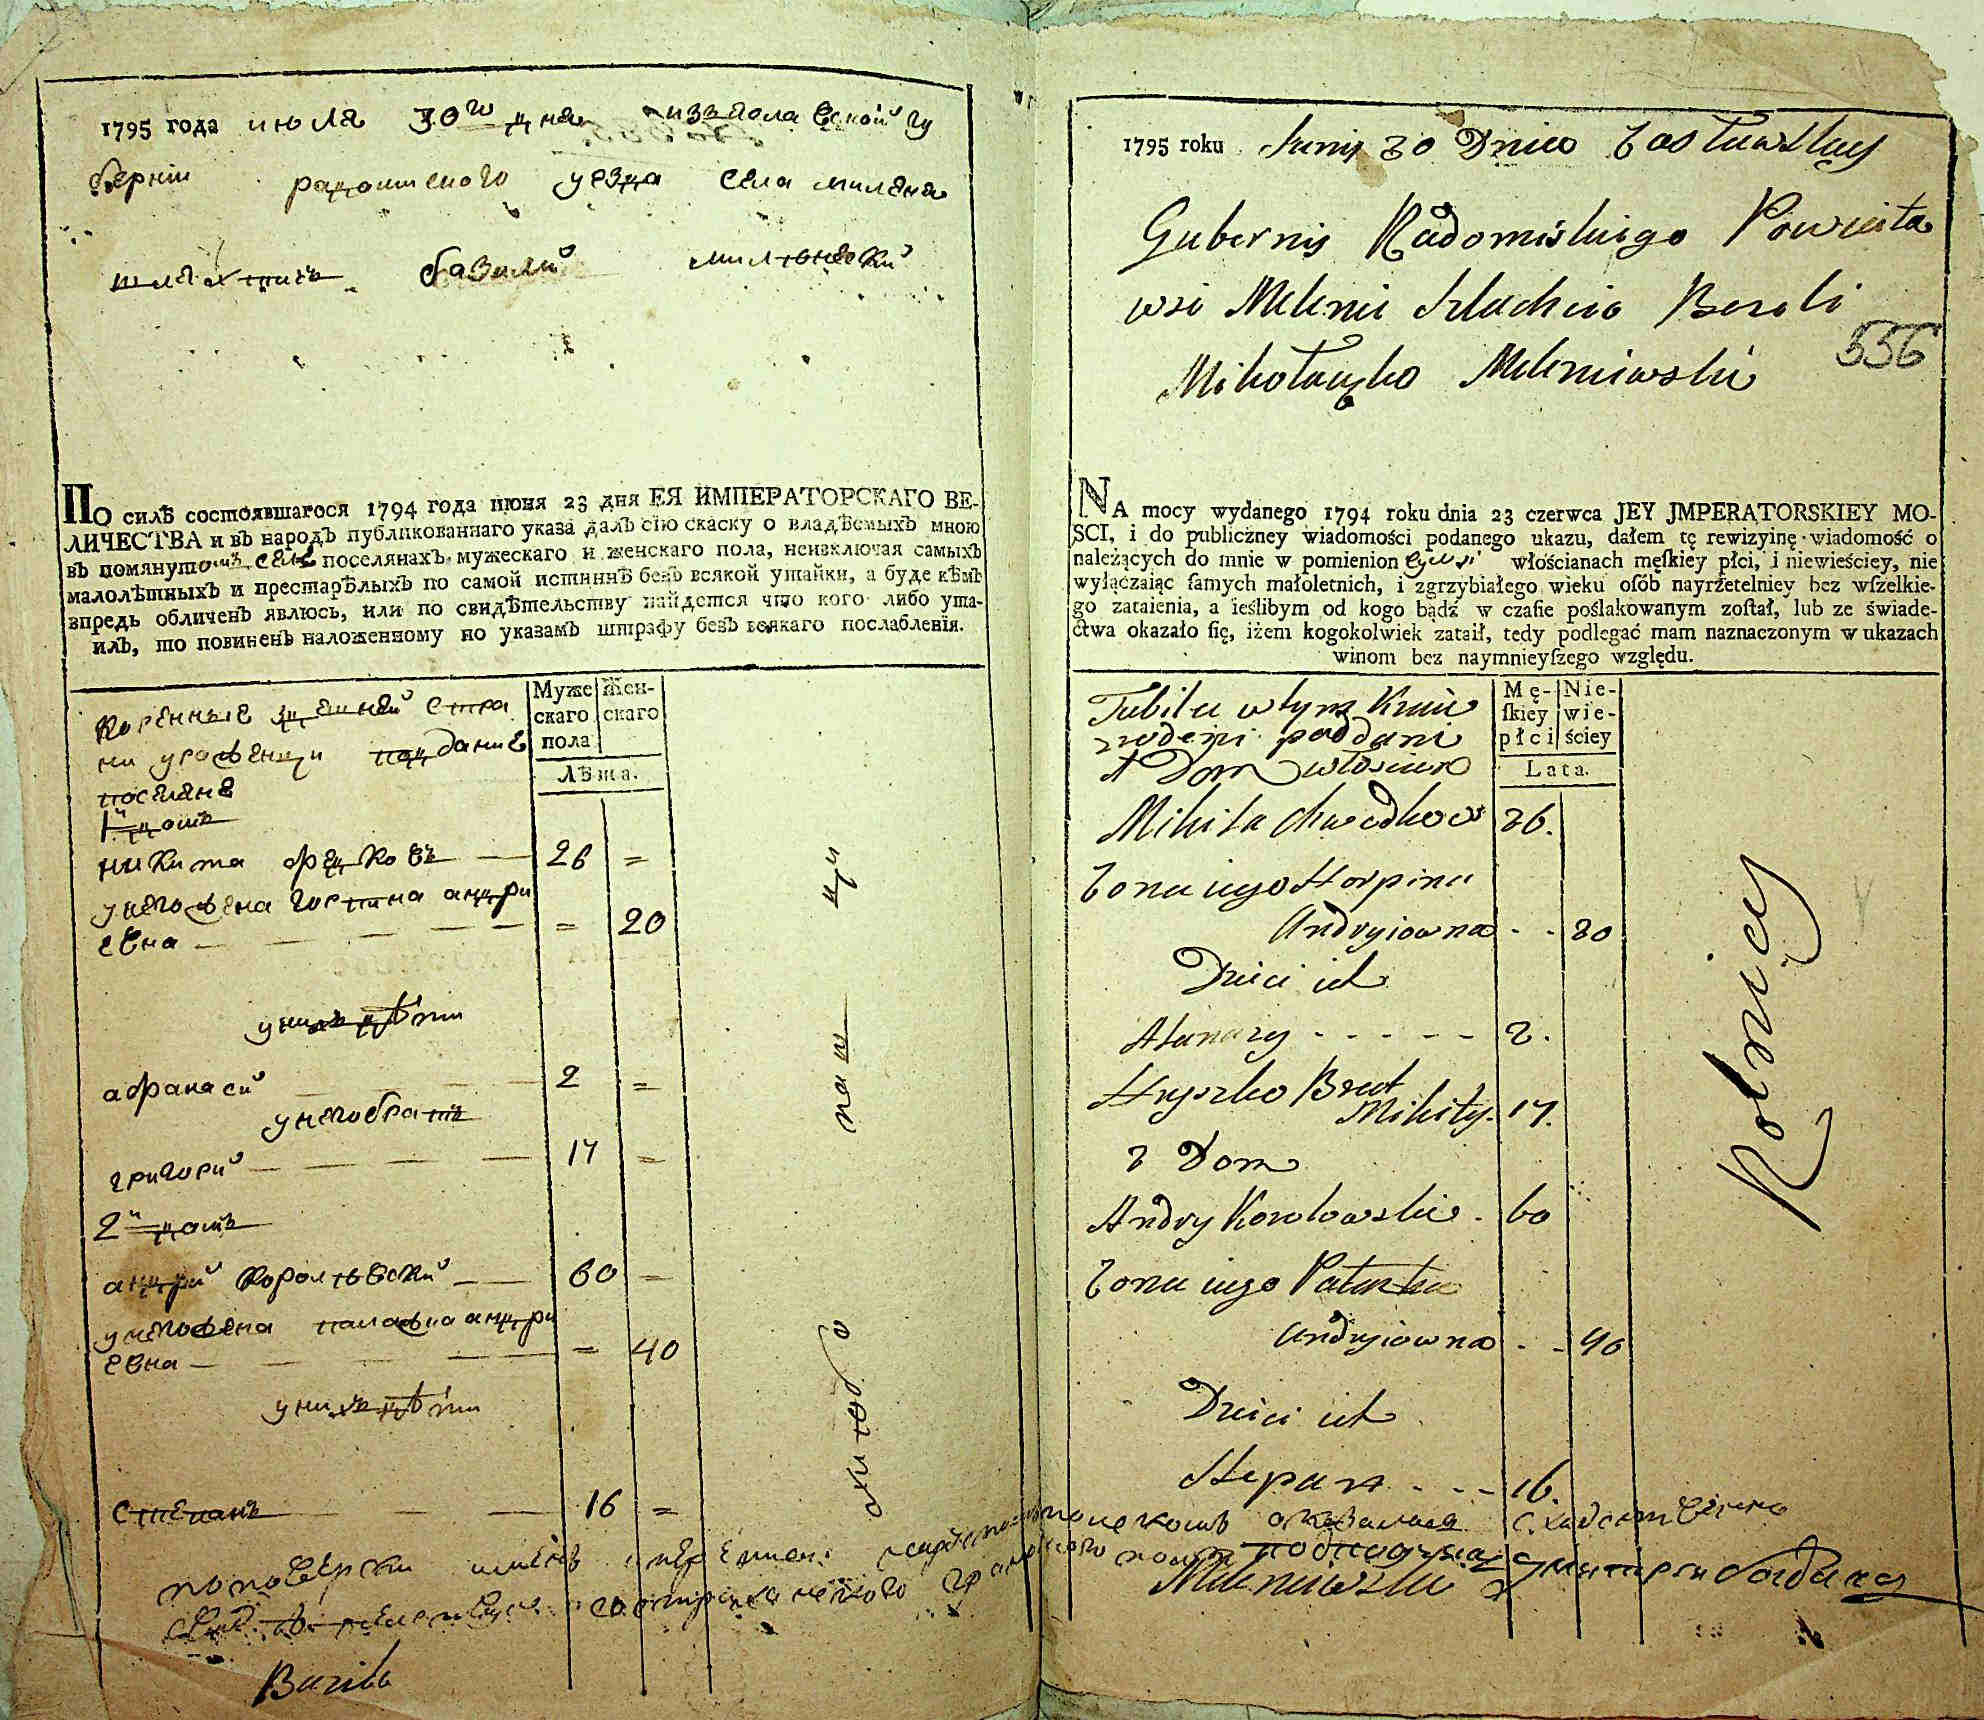 1795 года июля 30го дня изяславской гу
берніи радомшского уезда села миленя
шляхтичь базилий миленевский
По силѣ состоявшагося 1794 года июня 23 дня ЕЯ ИМПЕРАТОРСКАГО ВЕ-
ЛИЧЕСТВА и въ народъ публикованнаго указа далъ сію скаску о владѣемыхъ мною
въ помянутомъ селе поселянахъ мужескаго и женскаго пола, неизключая самыхъ
малолѣтныхъ и престарѣлыхъ по самой истиннѣ безъ всякой утайки, а буде кѣмъ
впредь обличенъ явлюсь, или по свидѣтельству найдется что кого либо ута-
илъ, то повиненъ наложенному по указамъ штрафу безъ всякаго послабленія.
Муже|Жен-
скаго|скаго
пола
Лѣта.
коренные здешней стра
ни уроженци подание
поселяне
1й домъ
никита федковъ — 26 =
унего жена горпина андри
евна — = 20
унихъ дѣти
афанасий 2 =
унего братъ
григорий — 17 =
2й домъ
андрий королевский — 60 =
унего жена палажка андри
евна — = 40
унихъ дѣти
степанъ — 16 =
Bazili
556
1795 roku Juny 30 Dnia Zasławskiey
Gubernij Radomiskiego Powiata
wsi Meleni Szlachcic Bazyli
Mikołayko Meleniewski
NA mocy wydanego 1794 roku dnia 23 czerwca JEY JMPERATORSKIEY MO-
SCI, i do publiczney wiadomości podanego ukazu, dałem tę rewizyinę wiadomość o
należących do mnie w pomienion eywsi włościanach męſkiey płci, i niewieściey, nie
wyłączaiąc ſamych małoletnich, i zgrzybiałego wieku oſób nayrzetelniey bez wſzelkie-
go zataienia, a ieślibym od kogo bądź w czaſie poślakowanym zoſtał, lub ze świade-
ctwa okazało ſię, iżem kogokolwiek zataił, tedy podlegać mam naznaczonym w ukazach
winom bez naymnieyſzego względu.
Mę-|Nie-
ſkiey|wie-
płci|ściey
Lata.
Tubilci w tym Kraiu
zrodzeni poddani
1 Dom włoscian
Mikita Chwedkow 26.
Zona iego Horpina
Andryiowna - - 20
Dzieci ich
Atanazy - - - - - 2.
Hryszko Brat
Mikity. 17.
2 Dom
Andry Korolowski . 60
Zona iego Pałaszka
Andryiowna - - 40
Dzieci ich
Stepan - - - 16.
Rolnicy
Meleniewski